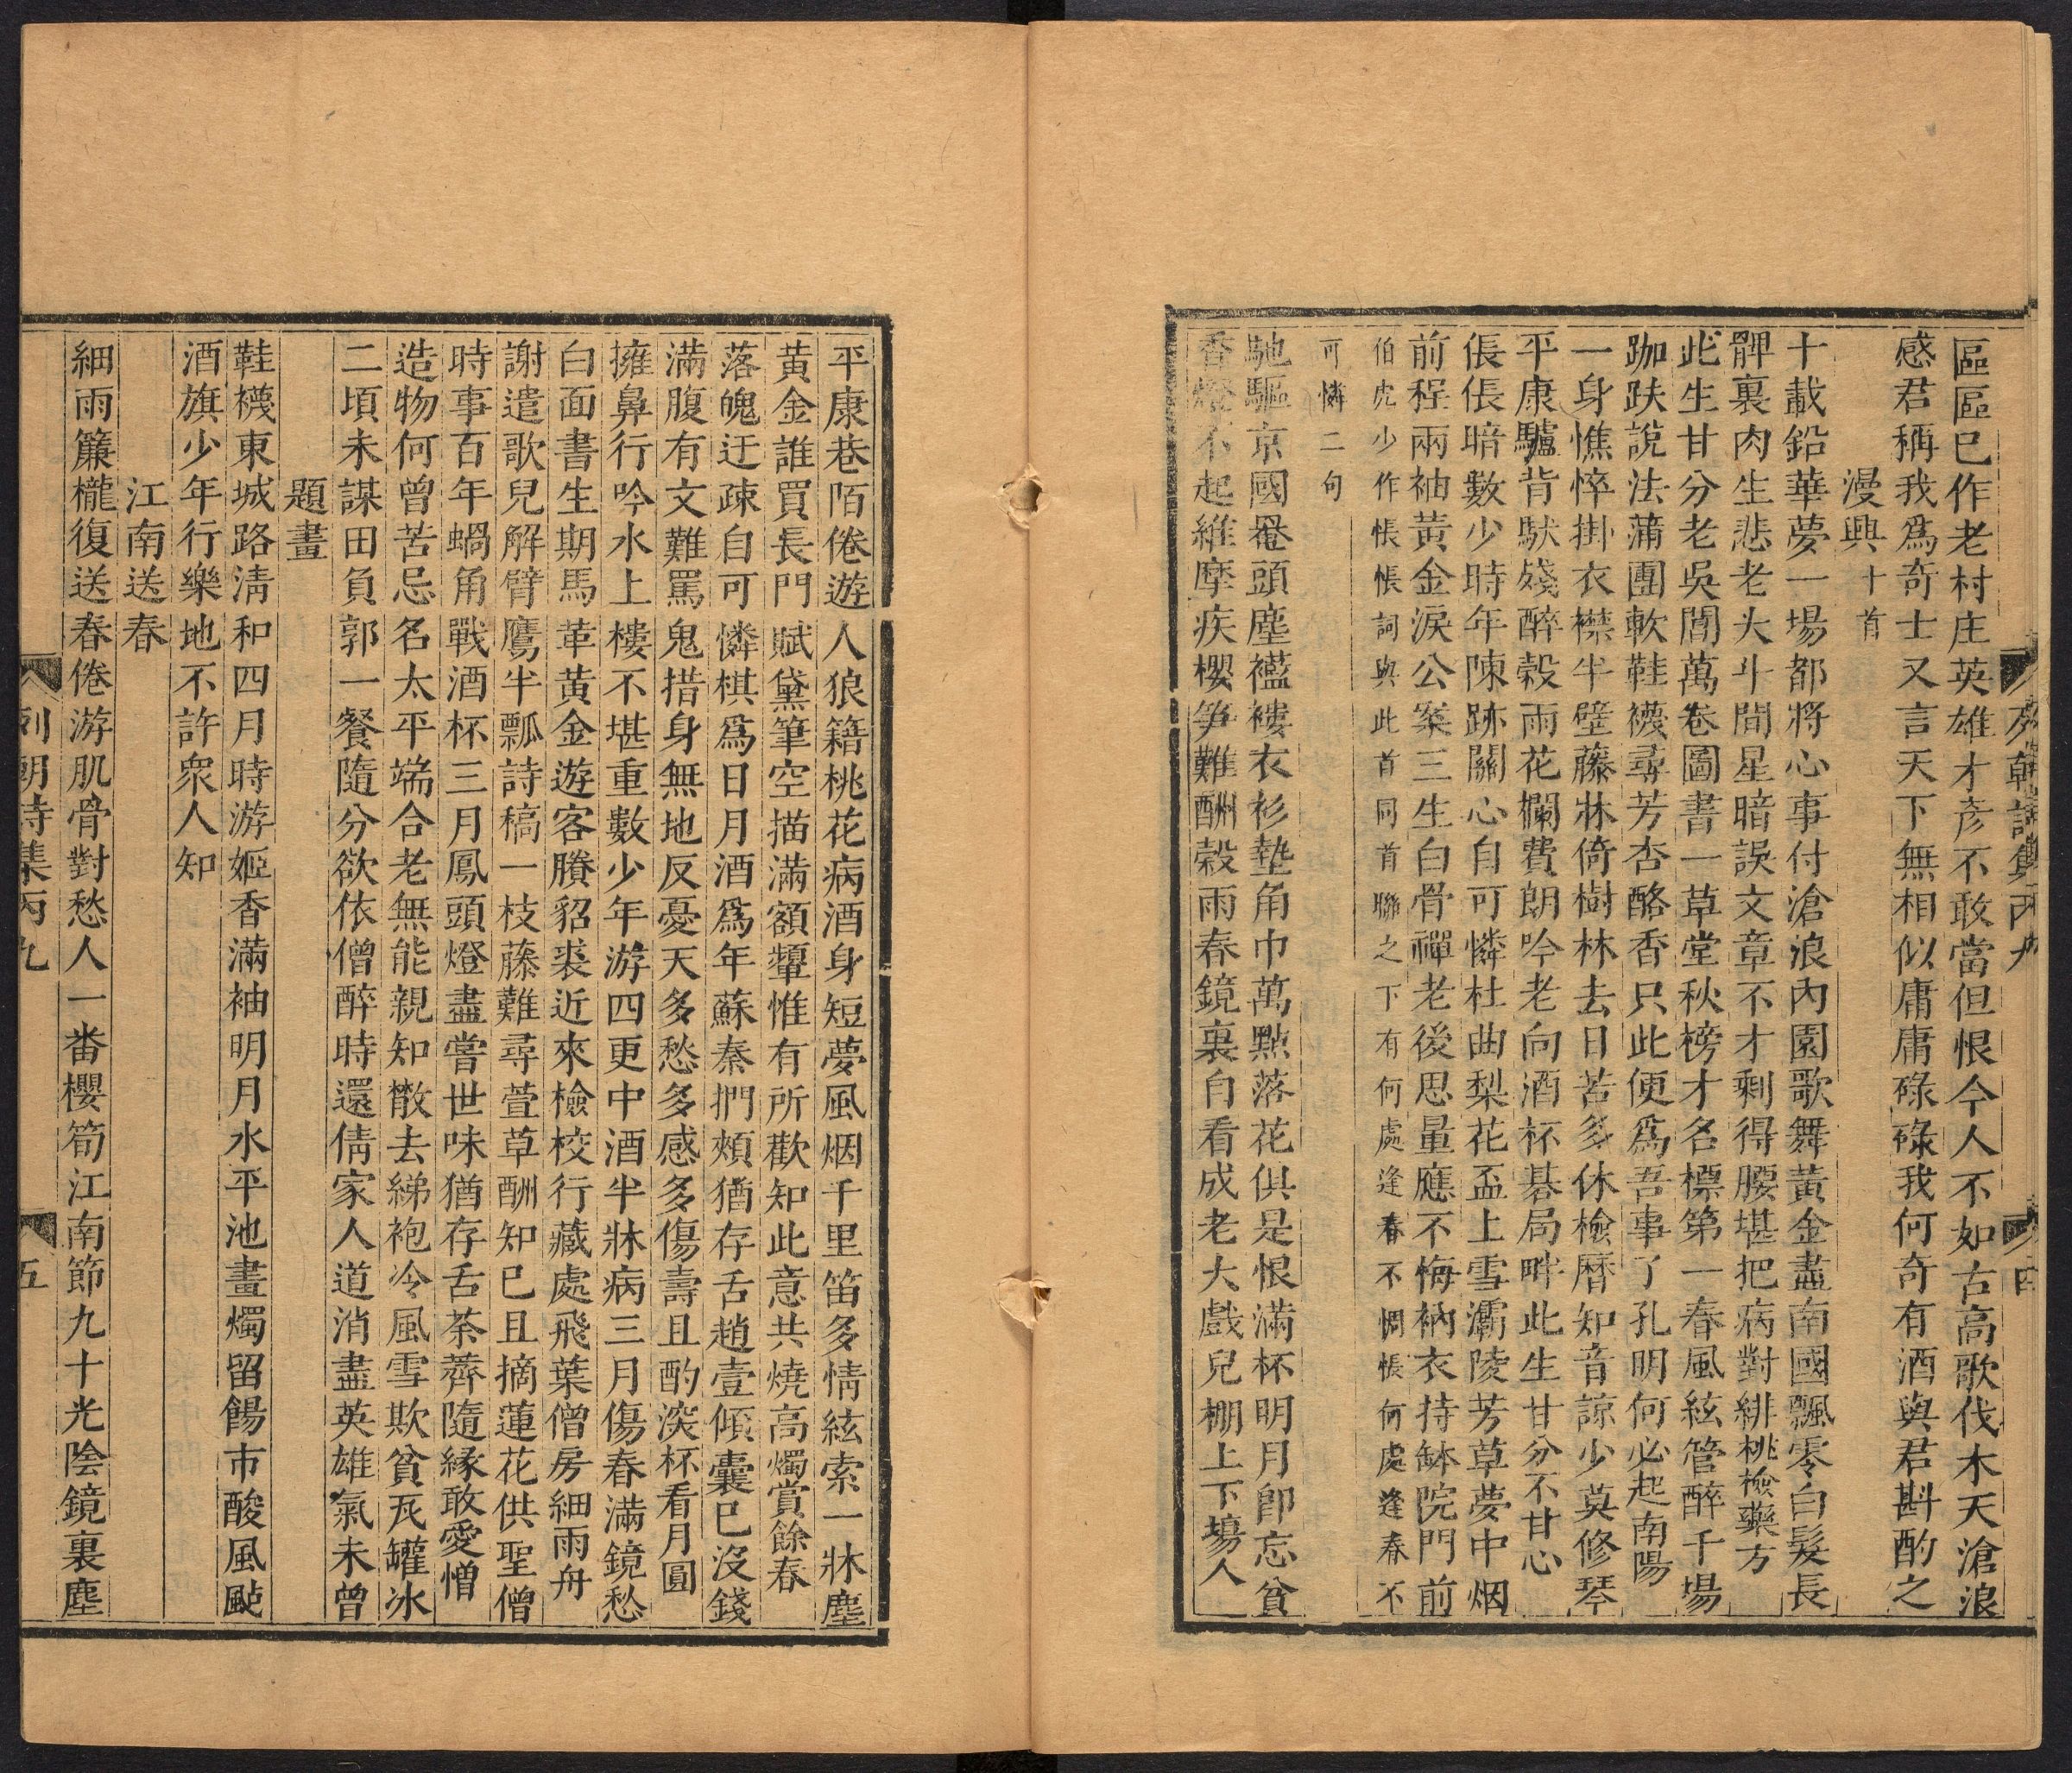 列朝詩集丙九
四
區區已作老村庄英雄才彥不敢當但恨今人不如古高歌伐木天滄浪
感君稱我爲奇士又言天下無相似庸庸碌碌我何奇有酒與君斟酌之
漫興十首
十載鉛華夢一場都將心事付滄浪內園歌舞黃金盡南國飄零白髮長
髀裏肉生悲老大斗間星暗誤文章不才剩得腰堪把病對緋桃檢藥方
此生甘分老吳閶萬卷圖書一草堂秋榜才名標第一春風絃管醉千場
跏趺說法蒲團軟鞋襪尋芳杏酪香只此便爲吾事了孔明何必起南陽
一身憔悴掛衣襟半壁藤牀倚樹林去日苦多休檢曆知音諒少莫修琴
平康驢背馱殘醉穀雨花欄費朗吟老向酒杯棊局畔此生甘分不甘心
倀倀暗數少時年陳跡關心自可憐杜曲梨花盃上雪灞陵芳草夢中烟
前程兩袖黃金淚公案三生白骨禪老後思量應不悔衲衣持缽院門前
伯虎少作帳帳詞與此首同首聯之下有何處逢春不惆悵何處逢春不
可憐二句
馳驅京國罨頭塵襤褸衣衫墊角巾萬點落花俱是恨滿杯明月卽忘貧
香燈不起維摩疾櫻笋難酬穀雨春鏡裏自看成老大戲兒棚上下塲人
平康巷陌倦遊人狼籍桃花病酒身短夢風烟千里笛多情絃索一牀塵
黃金誰買長門賦黛筆空描滿額顰惟有所歡知此意共燒高燭賞餘春
落魄迂疎自可憐棋爲日月酒爲年蘇秦捫頰猶存舌趙壹傾囊已沒錢
滿腹有文難罵鬼措身無地反憂天多愁多感多傷壽且酌深杯看月圓
擁鼻行吟水上樓不堪重數少年游四更中酒半牀病三月傷春滿鏡愁
白面書生期馬革黃金遊客賸貂裘近來檢校行藏處飛葉僧房細雨舟
謝遣歌兒解臂鷹半瓢詩稿一枝藤難尋萱草酬知己且摘蓮花供聖僧
時事百年蝸角戰酒杯三月鳳頭燈盡嘗世味猶存舌荼薺隨緣敢愛憎
造物何曾苦忌名太平端合老無能親知散去綈袍冷風雪欺貧瓦罐冰
二頃未謀田負郭一餐隨分欲依僧醉時還倩家人道消盡英雄氣未曾
題畫
鞋襪東城路淸和四月時游姬香滿袖明月水平池畫燭留餳市酸風颭
酒旗少年行樂地不許衆人知
江南送春
細雨簾櫳復送春倦游肌骨對愁人一番櫻筍江南節九十光陰鏡裏塵
列朝詩集丙九
五